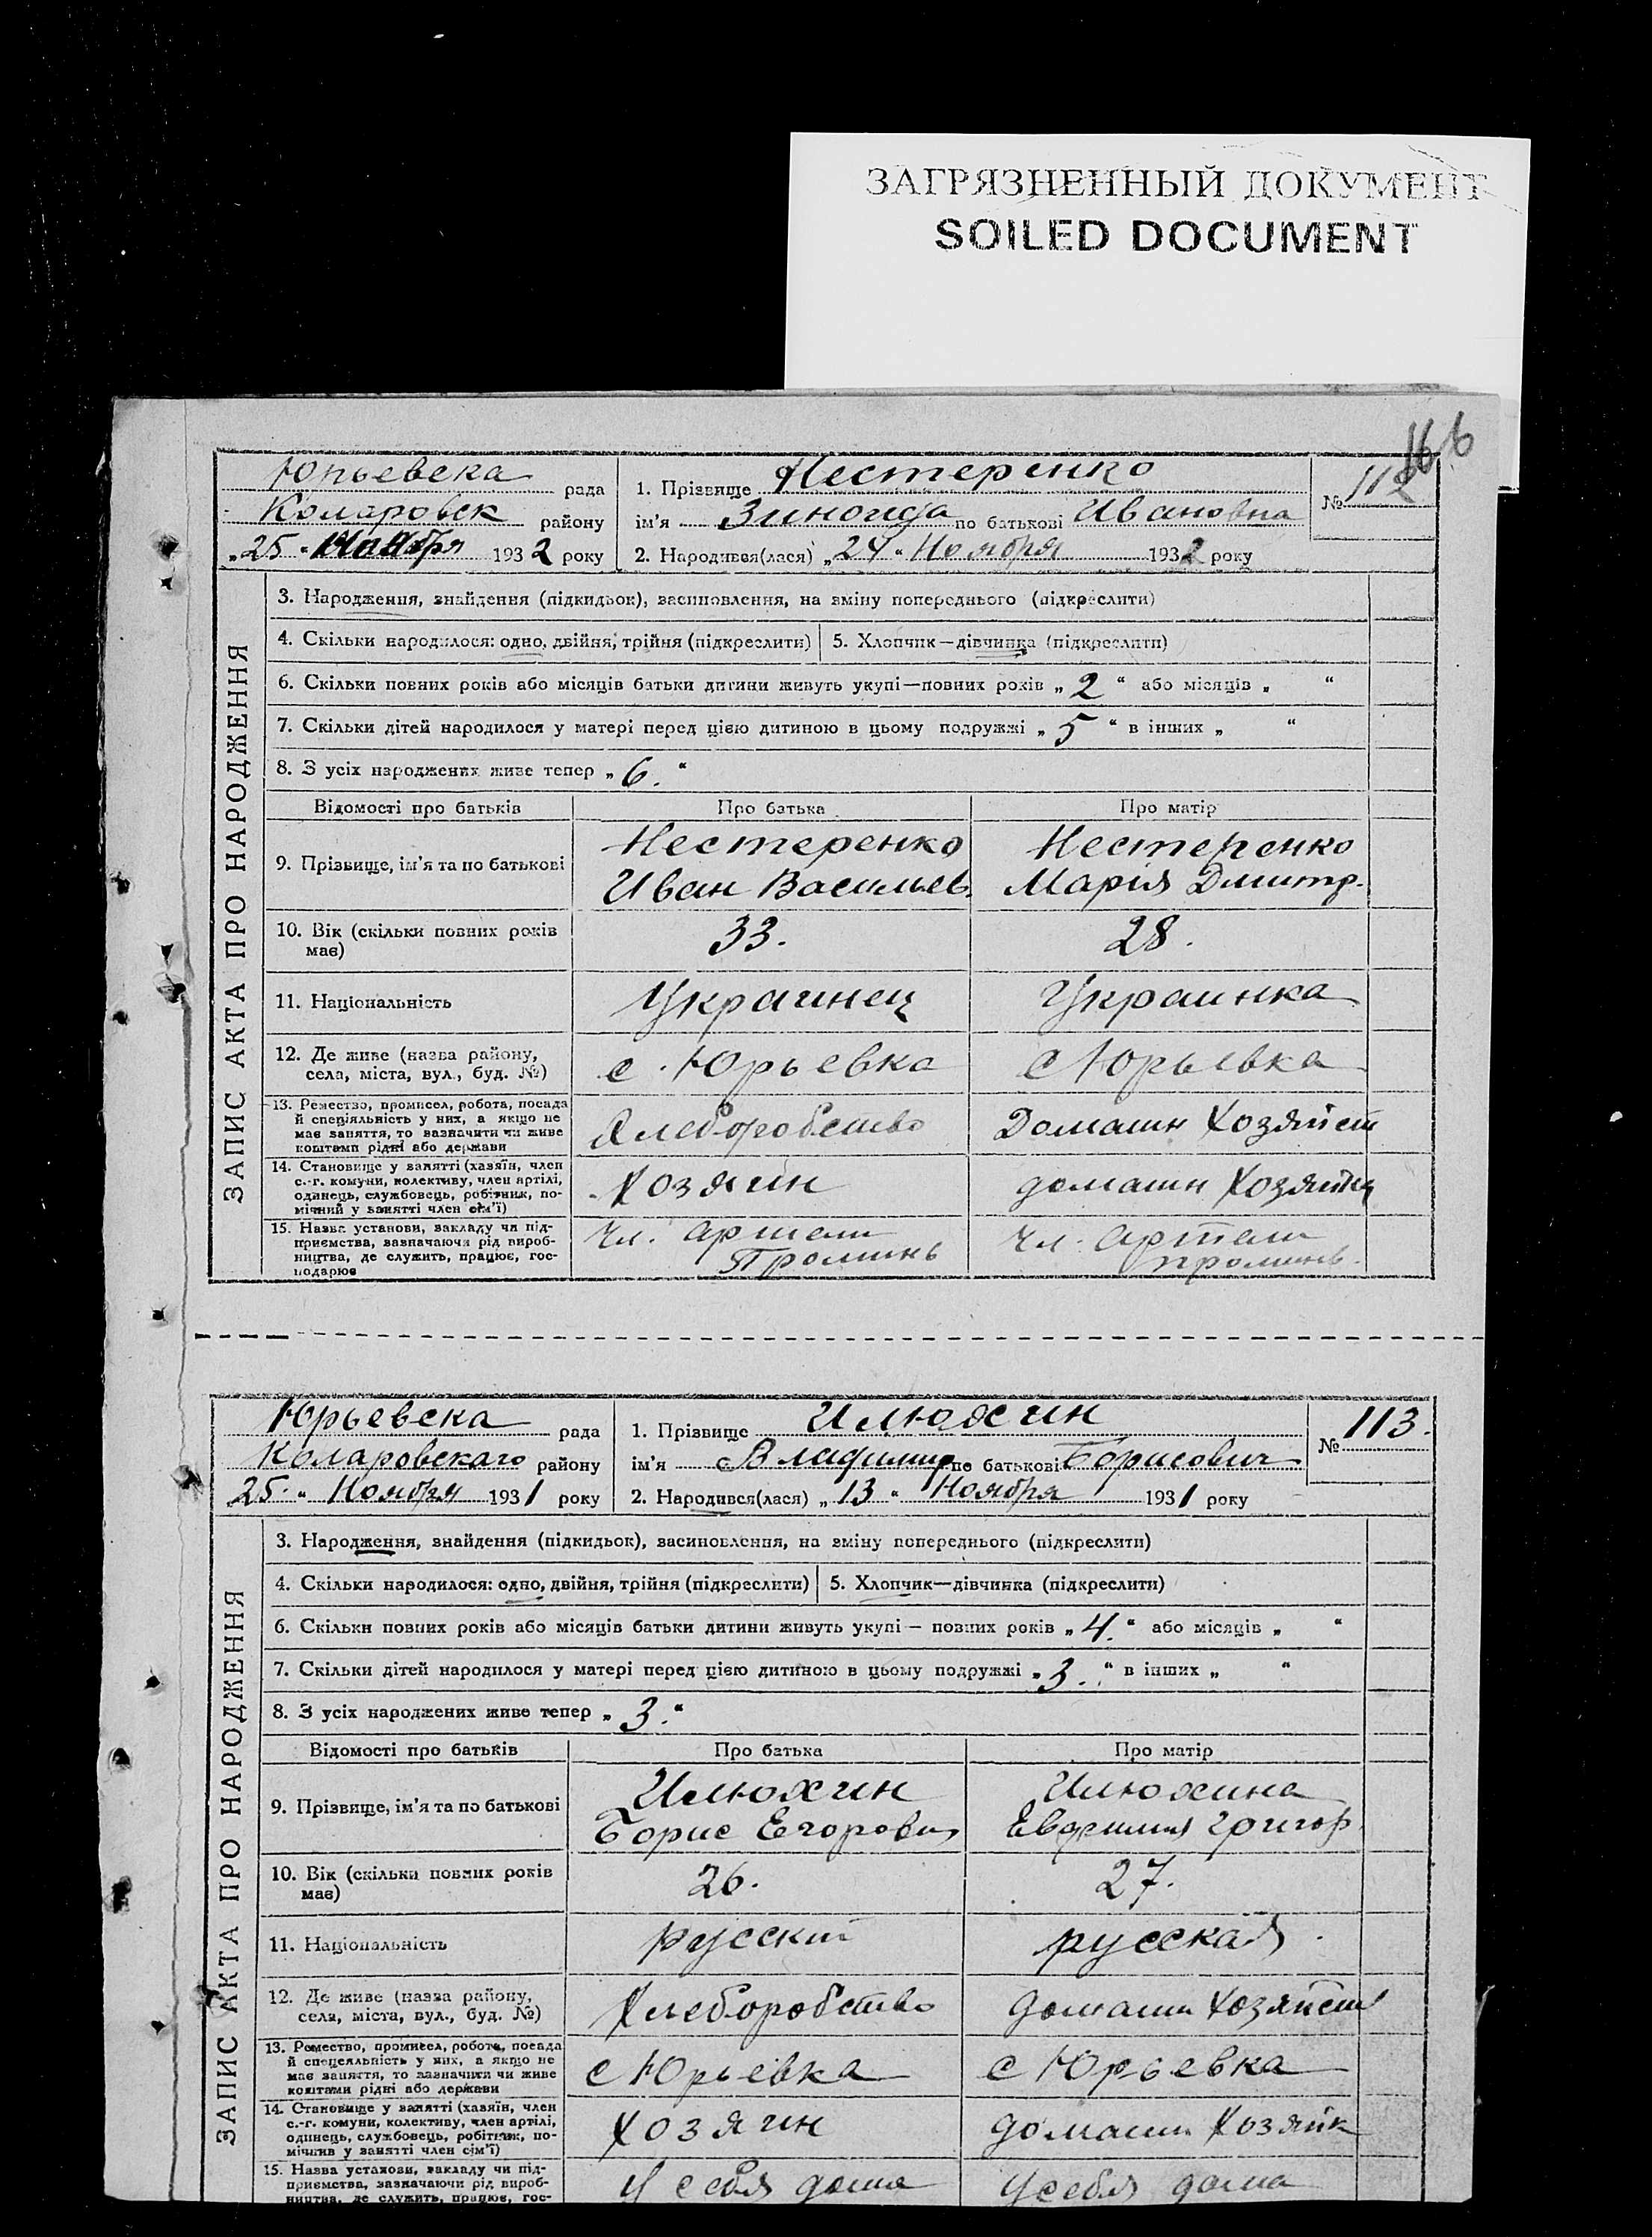 ЗАГРЯЗНЕННЫЙ ДОКУМЕНТ
SOILED DOCUMENT
166
Юрьевска рада
Коларовск району
„25“ Ноября 1932 року
1. Прізвище Нестеренко
ім'я Зиноида по батькові Ивановна
2. Народився(лася) „24“ Ноября 1932 року
№ 112
ЗАПИС АКТА ПРО НАРОДЖЕННЯ
3. Народження, знайдення (підкидьок), засиновлення, на зміну попереднього (підкреслити)
4. Скільки народилося: одно, двійня, трійня (підкреслити) 5. Хлопчик—дівчинка (підкреслити)
6. Скільки повних років або місяців батьки дитини живуть укупі—повних років „2“ або місяців „ “
7. Скільки дітей народилося у матері перед цією дитиною в цьому подружжі „5“ в інших „ “
8. З усіх народжених живе тепер „6.“
Відомості про батьків Про батька Про матір
9. Прізвище, ім'я та по батькові
Нестеренко
Иван Васильев.
Нестеренко
Марія Дмитр.
10. Вік (скільки повних років
має)
33.
28.
11. Національність Украинец Украинка
12. Де живе (назва району,
села, міста, вул., буд. №)
с. Юрьевка
с Юрьевка
13. Ремество, промисел, робота, посада
й спеціяльність у них, а якщо не
має заняття, то зазначити чи живе
коштами рідні або держави
Хлеборобство
Домашн Хозяйст
14. Становище у занятті (хазяїн, член
с.-г. комуни, колективу, член артілі,
одинець, службовець, робітник, по-
мічний у занятті член сім'ї)
Хозяин
домашн Хозяйка
15. Назва установи, закладу чи під-
приємства, зазначаючи рід вироб-
ництва, де служить, працює, гос-
подарює
Чл. артели
Проминь
Чл. Артели
проминь.
Юрьевска рада
Коларовскаго району
25. „ Ноября 1931 року
1. Прізвище Илюхин
ім'я Владимир по батькові Борисович
2. Народився(лася) „13“ Ноября 1931 року
№ 113.
ЗАПИС АКТА ПРО НАРОДЖЕННЯ
3. Народження, знайдення (підкидьок), засиновлення, на зміну попереднього (підкреслити)
4. Скільки народилося: одно, двійня, трійня (підкреслити) 5. Хлопчик—дівчинка (підкреслити)
6. Скільки повних років або місяців батьки дитини живуть укупі — повних років „4.“ або місяців „ “
7. Скільки дітей народилося у матері перед цією дитиною в цьому подружжі „3.“ в інших „ “
8. З усіх народжених живе тепер „3.“
Відомості про батьків Про батька Про матір
9. Прізвище, ім'я та по батькові
Илюхин
Борис Егорович
Илюхина
Евдокимия Григор.
10. Вік (скільки повних років
має)
26.
27.
11. Національність русский русская.
12. Де живе (назва району,
села, міста, вул., буд. №)
Хлеборобство
домашн Хозяйств
13. Ремество, промисел, робота, посада
й спецеяльність у них, а якщо не
має заняття, то зазначити чи живе
коштами рідні або держави
с Юрьевка
с Юрьевка
14. Становище у занятті (хазяїн, член
с.-г. комуни, колективу, член артілі,
одинець, службовець, робітник, по-
мічнив у занятті член сім'ї)
Хозяин
домашн Хозяйк
15. Назва установи, закладу чи під-
приємства, зазначаючи рід вироб-
ництва, де служить, працює, гос-
У себя дома
У себя дома